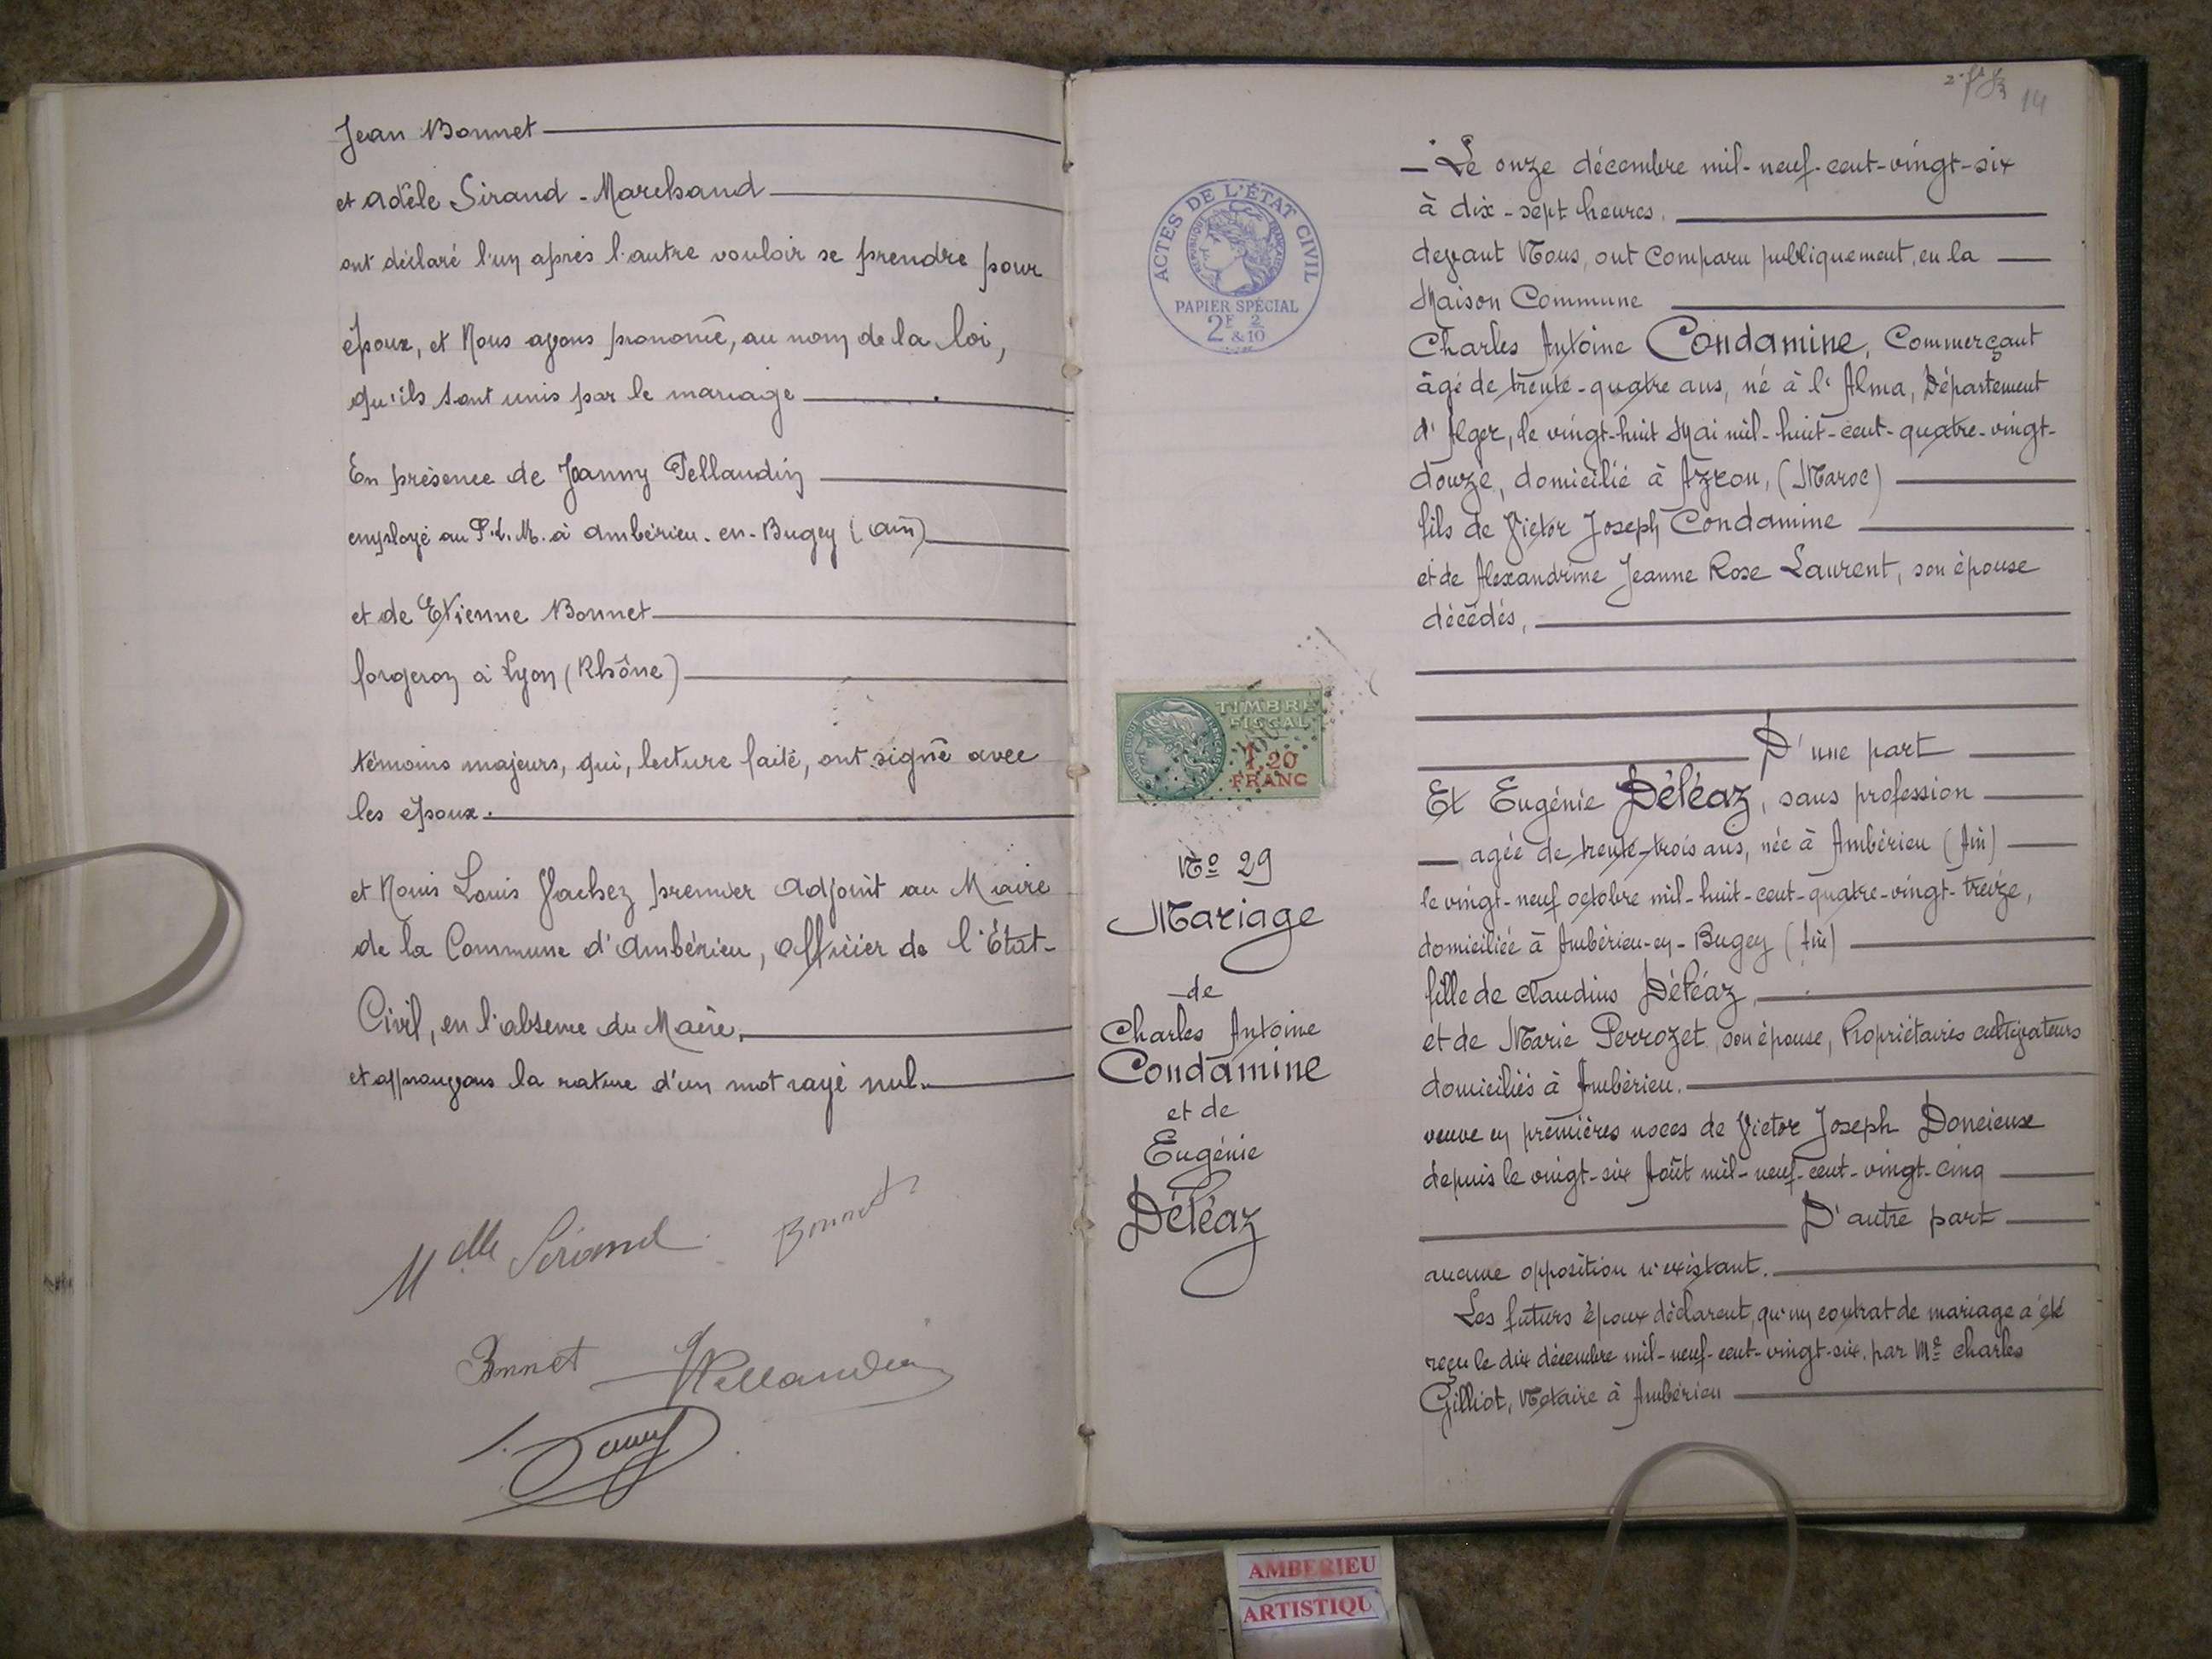 Jean Bonnet
et Adèle Siraud-Marchand
ont déclaré l'un après l'autre vouloir se prendre pour
époux, et Nous avons prononcé, au nom de la loi,
qu'ils sont unis par le mariage
En présence de Joanny Pellaudin
employé au P.L.M. à Ambérieu-en-Bugey (Ain)
et de Etienne Bonnet
forgeron à Lyon (Rhône)
témoins majeurs, qui, lecture faite, ont signé avec
les époux.
et Nous Louis Vachez premier Adjoint au Maire
de la Commune d'Ambérieu, Officier de l'État-
Civil, en l'absence du Maire.
et approuvons la rature d'un mot rayé nul.
Mdlle Siraud
Bonnet
Bonnet
Pellaudin
14
ACTES DE L'ÉTAT CIVIL
RÉPUBLIQUE FRANÇAISE
PAPIER SPÉCIAL
2F 2
&10
TIMBRE
FISCAL
1,20
FRANC
No 29
Mariage
de
Charles Antoine
Condamine
et de
Eugénie
Déléaz
Le onze décembre mil-neuf-cent-vingt-six
à dix-sept heures.
devant Nous, ont comparu publiquement, en la
Maison Commune
Charles Antoine Condamine, Commerçant
âgé de trente-quatre ans, né à l'Alma, Département
d'Alger, le vingt-huit Mai mil-huit-cent-quatre-vingt-
douze, domicilié à Azrou, (Maroc)
fils de Victor Joseph Condamine
et de Alexandrine Jeanne Rose Laurent, son épouse
décédés,
D'une part
Et Eugénie Déléaz, sans profession
agée de trente-trois ans, née à Ambérieu (Ain)
le vingt-neuf octobre mil-huit-cent-quatre-vingt-treize,
domiciliée à Ambérieu-en-Bugey (Ain)
fille de Claudius Déléaz,
et de Marie Perrozet, son épouse, Propriétaires cultivateurs
domiciliés à Ambérieu.
veuve en premières noces de Victor Joseph Doncieux
depuis le vingt-six Août mil-neuf-cent-vingt-cinq
D'autre part
aucune opposition n'existant.
Les futurs époux déclarent, qu'un contrat de mariage a été
reçu le dix décembre mil-neuf-cent-vingt-six, par Me Charles
Gilliot, Notaire à Ambérieu
AMBERIEU
ARTISTIQU